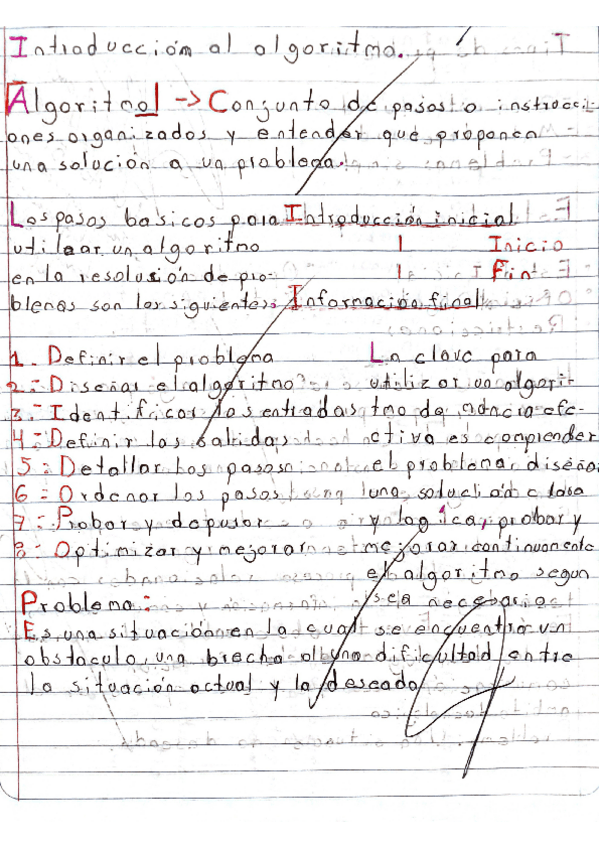 Introducción al algoritmo.
Algoritmo -> Conjunto de pasos o instrucci-
ones organizados y entender que proponen
una solución a un problema.
Los pasos basicos para
utilzar un algoritmo
en la resolución de pro-
blemas son los siguientes:
1. Definir el problema
2.- Diseñar el algoritmo
3.- Identificar las entradas
4.- Definir las salidas
5.- Detallar los pasos
6.- Ordenar los pasos
7.- Probar y depurar
8.- Optimizar y mejorar
Introducción inicial
1 Inicio
1 Fin
Información final
La clave para
utilizar un algorit-
tmo de manera efe-
ctiva es comprender
el problema, diseña
una solución clara
y logica, probar y
mejorar continuamente
el algoritmo segun
sea necesario
Problema:
Es una situación en la cual se encuentra un
obstaculo, una brecha o una dificultad entre
la situación actual y la deseada